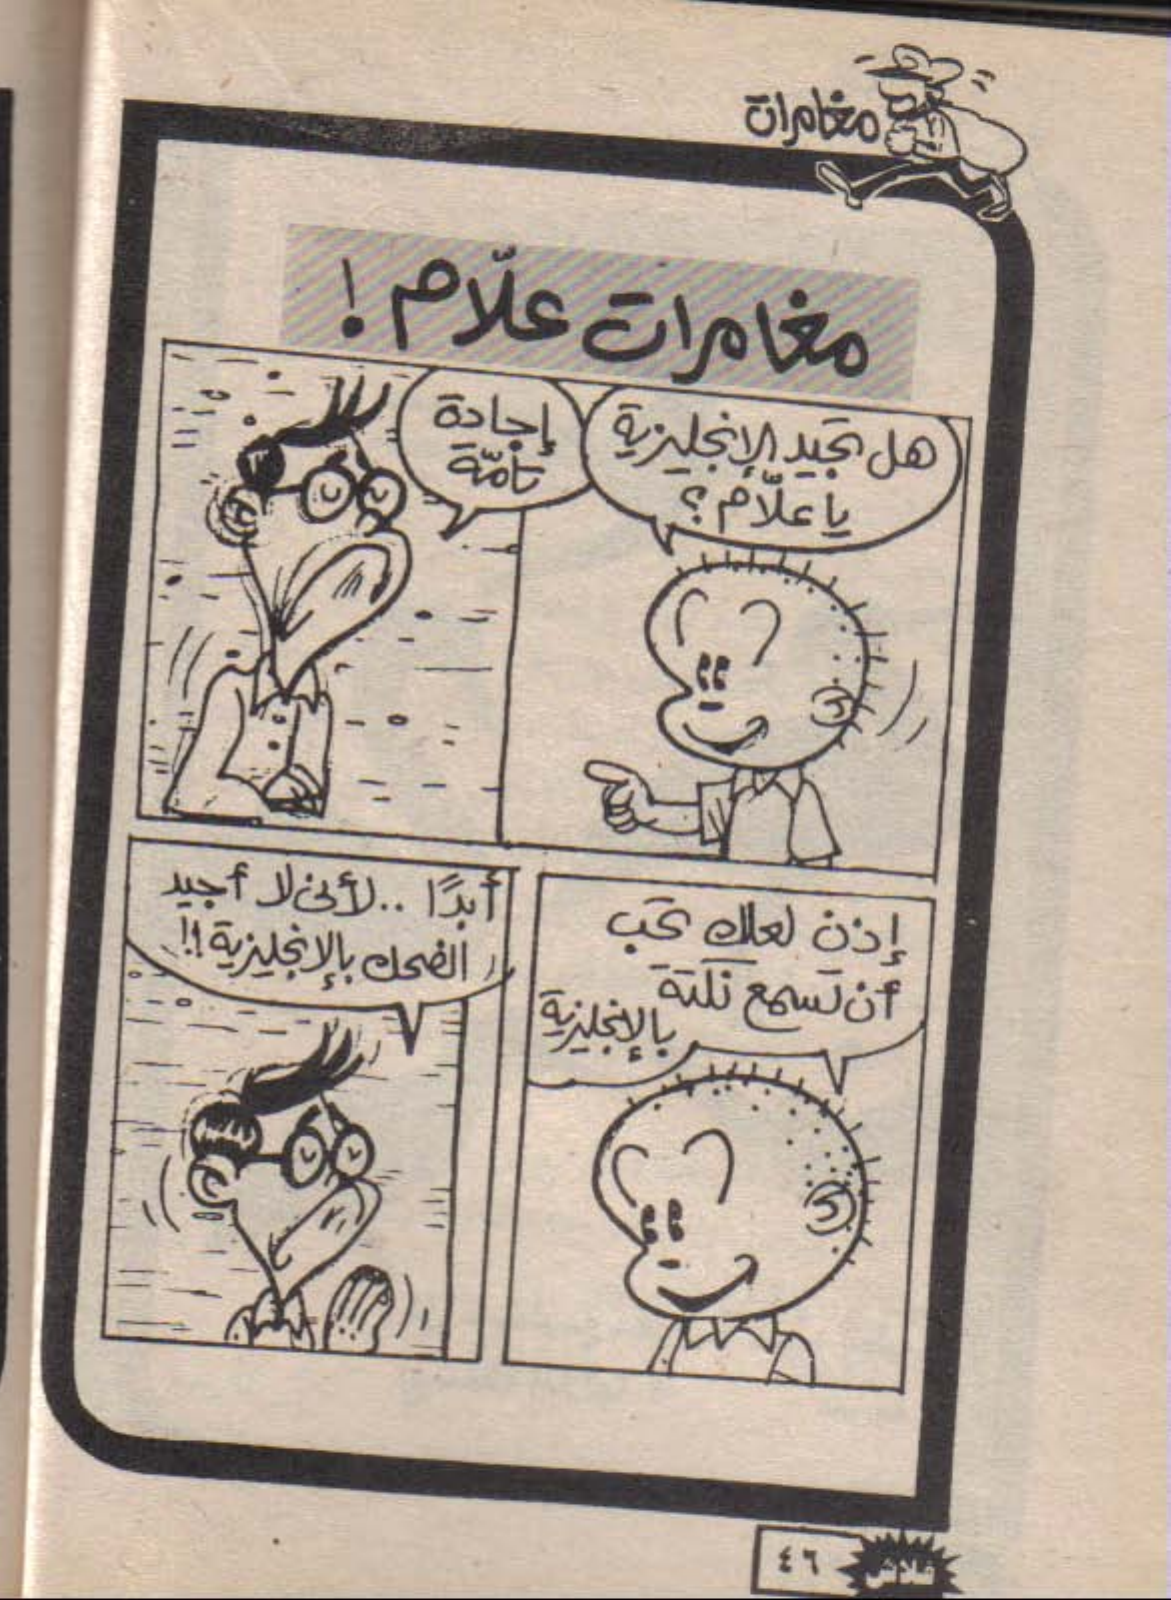 مغامرات
مغامرات علّام !
هل تجيد الإنجليزية
يا علّام ؟
إجادة
تامّة
إذن لعلك تحب
أن تسمع نكتة
بالإنجليزية
أبدًا .. لأنى لا أجيد
الضحك بالإنجليزية !!
٤٦
فلاش